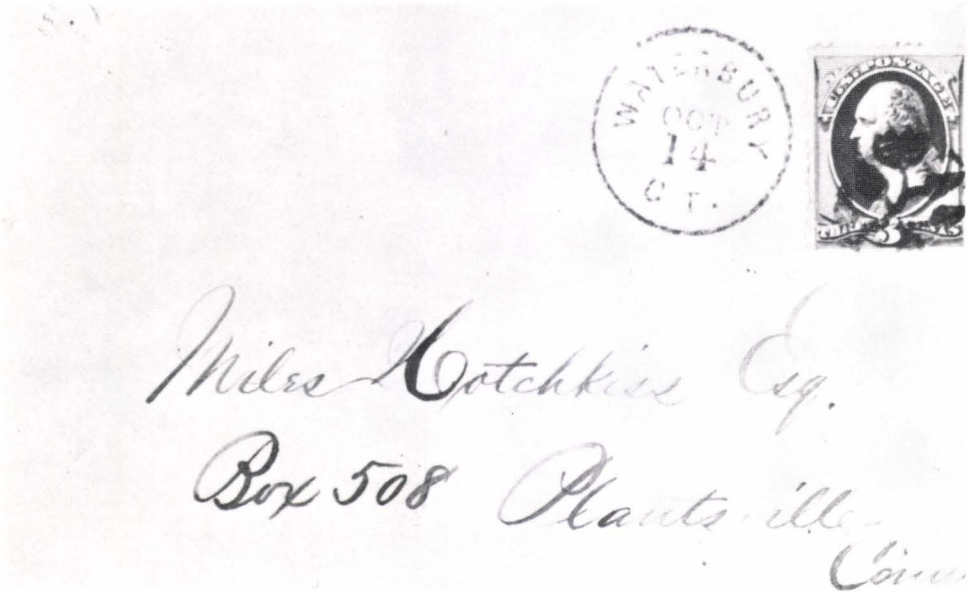 WATERBURY
OCT
14
CT.
U.S. POSTAGE
3
Miles Hotchkiss Esq.
Box 508 Plantsville
Conn